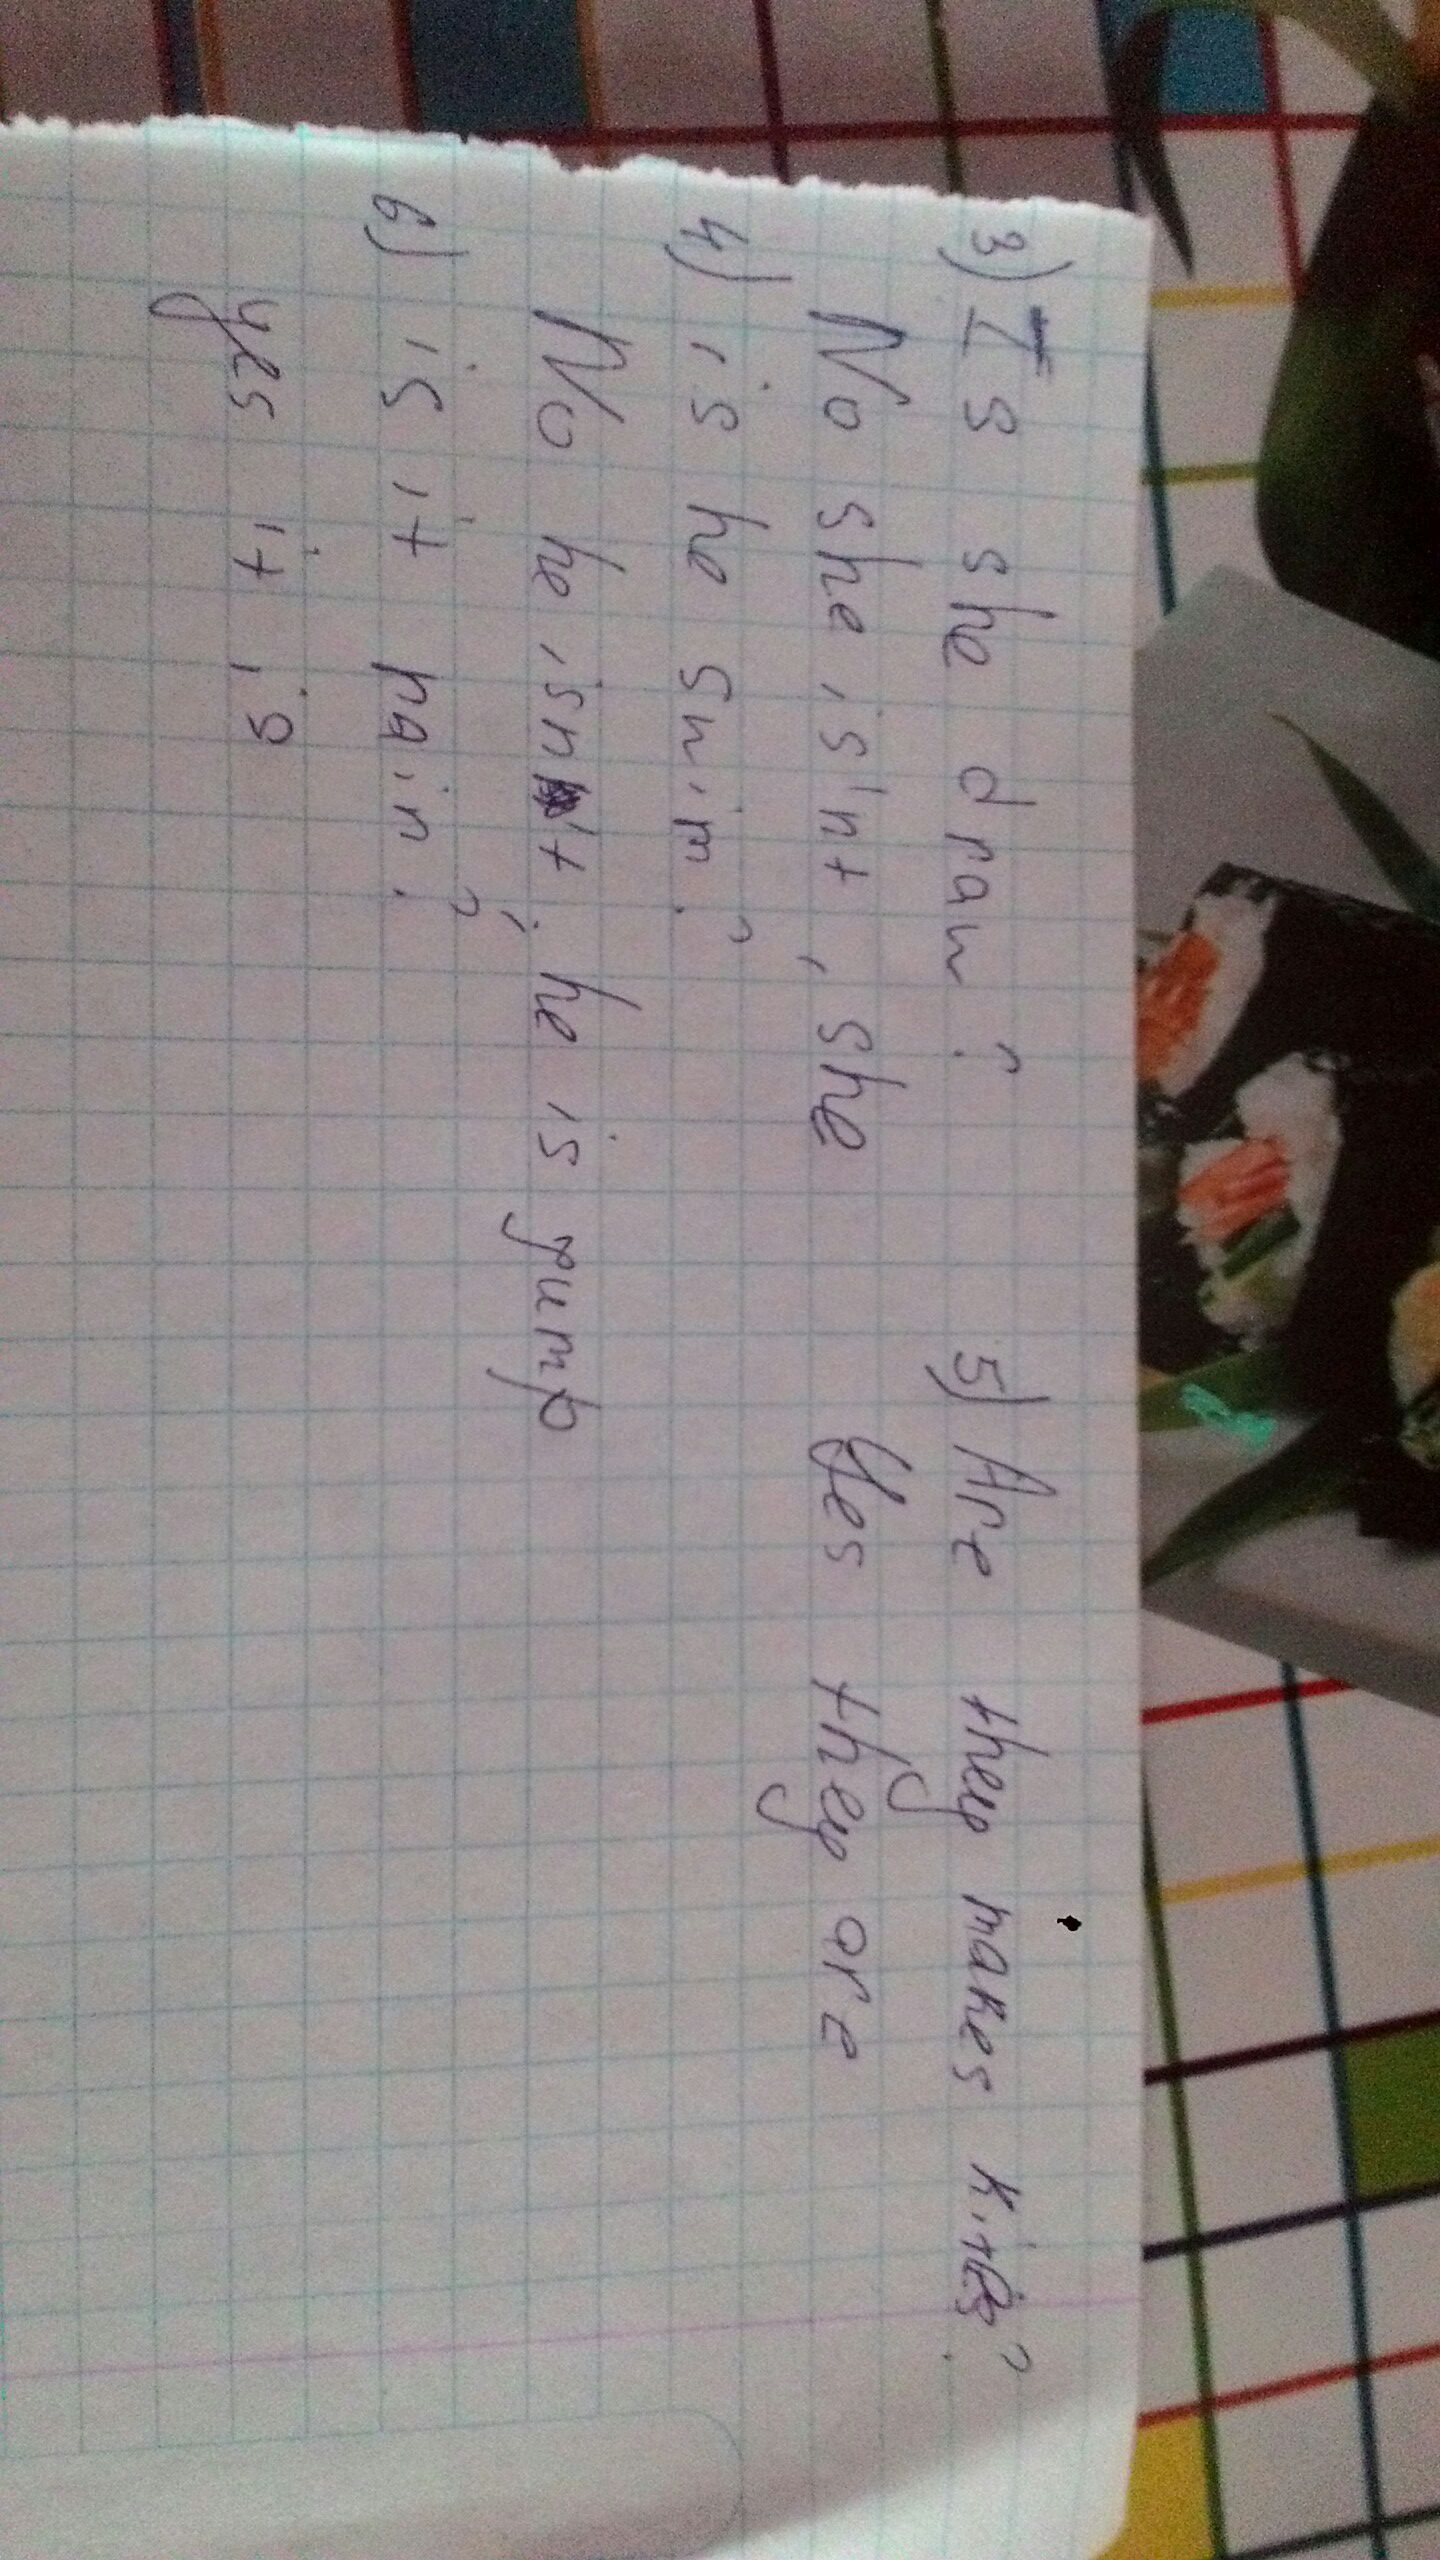 3) Is she draw?
No she is'nt, she
4) is he swim?
No he isn't, he is gump
6) is it hain?
yes it is
5) Are they makes kites?
Yes they are